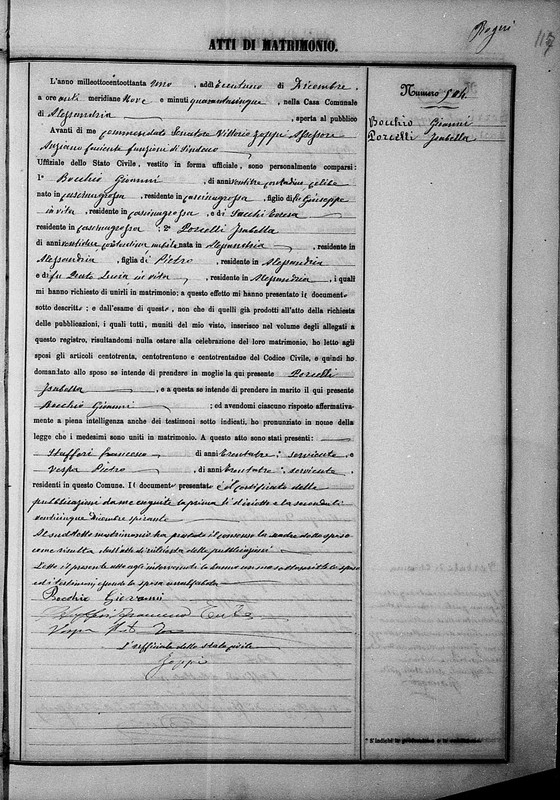 Pogni
117
ATTI DI MATRIMONIO.
L'anno milleottocentottanta uno, addì trentuno di Dicembre,
a ore anti meridiane nove e minuti quarantacinque, nella Casa Comunale
di Alessandria, aperta al pubblico
Avanti di me commendato Senatore Vittorio Zoppi Assessore
Anziano facente funzioni di Sindaco
Uffiziale dello Stato Civile, vestito in forma uffiziale, sono personalmente comparsi:
1º Bocchio Giovanni, di anni ventitre contadino celibe
nato in Cascinagrossa, residente in Cascinagrossa, figlio di Giuseppe
in vita, residente in Cascinagrossa, e di Sacchi Teresa
residente in Cascinagrossa; 2º Porcelli Isabella
di anni contadina nubile nata in Alessandria, residente in
Alessandria, figlia di Pietro, residente in Alessandria
e di fu Lucia in vita, residente in Alessandria, i quali
mi hanno richiesto di unirli in matrimonio; a questo effetto mi hanno presentato il documento
sotto descritto; e dall'esame di questo, non che di quelli già prodotti all'atto della richiesta
delle pubblicazioni, i quali tutti, muniti del mio visto, inserisco nel volume degli allegati a
questo registro, risultandomi nulla ostare alla celebrazione del loro matrimonio, ho letto agli
sposi gli articoli centotrenta, centotrentuno e centotrentadue del Codice Civile, e quindi ho
domandato allo sposo se intende di prendere in moglie la qui presente Porcelli
Isabella, e a questa se intende di prendere in marito il qui presente
Bocchio Giovanni; ed avendomi ciascuno risposto affermativa-
mente a piena intelligenza anche dei testimoni sotto indicati, ho pronunziato in nome della
legge che i medesimi sono uniti in matrimonio. A questo atto sono stati presenti:
Francesco di anni trentatre, servente e
Vespa Pietro, di anni trentatre, servente
residenti in questo Comune. Il documento presentato è il certificato delle
pubblicazioni da me eseguite la prima li diciotto e la seconda li
venticinque Dicembre spirante
Al suddetto matrimonio ha prestato il consenso la madre dello sposo
come risulta dall'atto di richiesta delle pubblicazioni
Letto il presente atto agli intervenuti lo hanno meco sottoscritto lo sposo
ed i testimoni essendo la sposa analfabeta
Bocchio Giovanni
Francesco Teste
Vespa
L'uffiziale dello stato civile
Zoppi
Numero 504
Bocchio Gianni
Porcelli Isabella